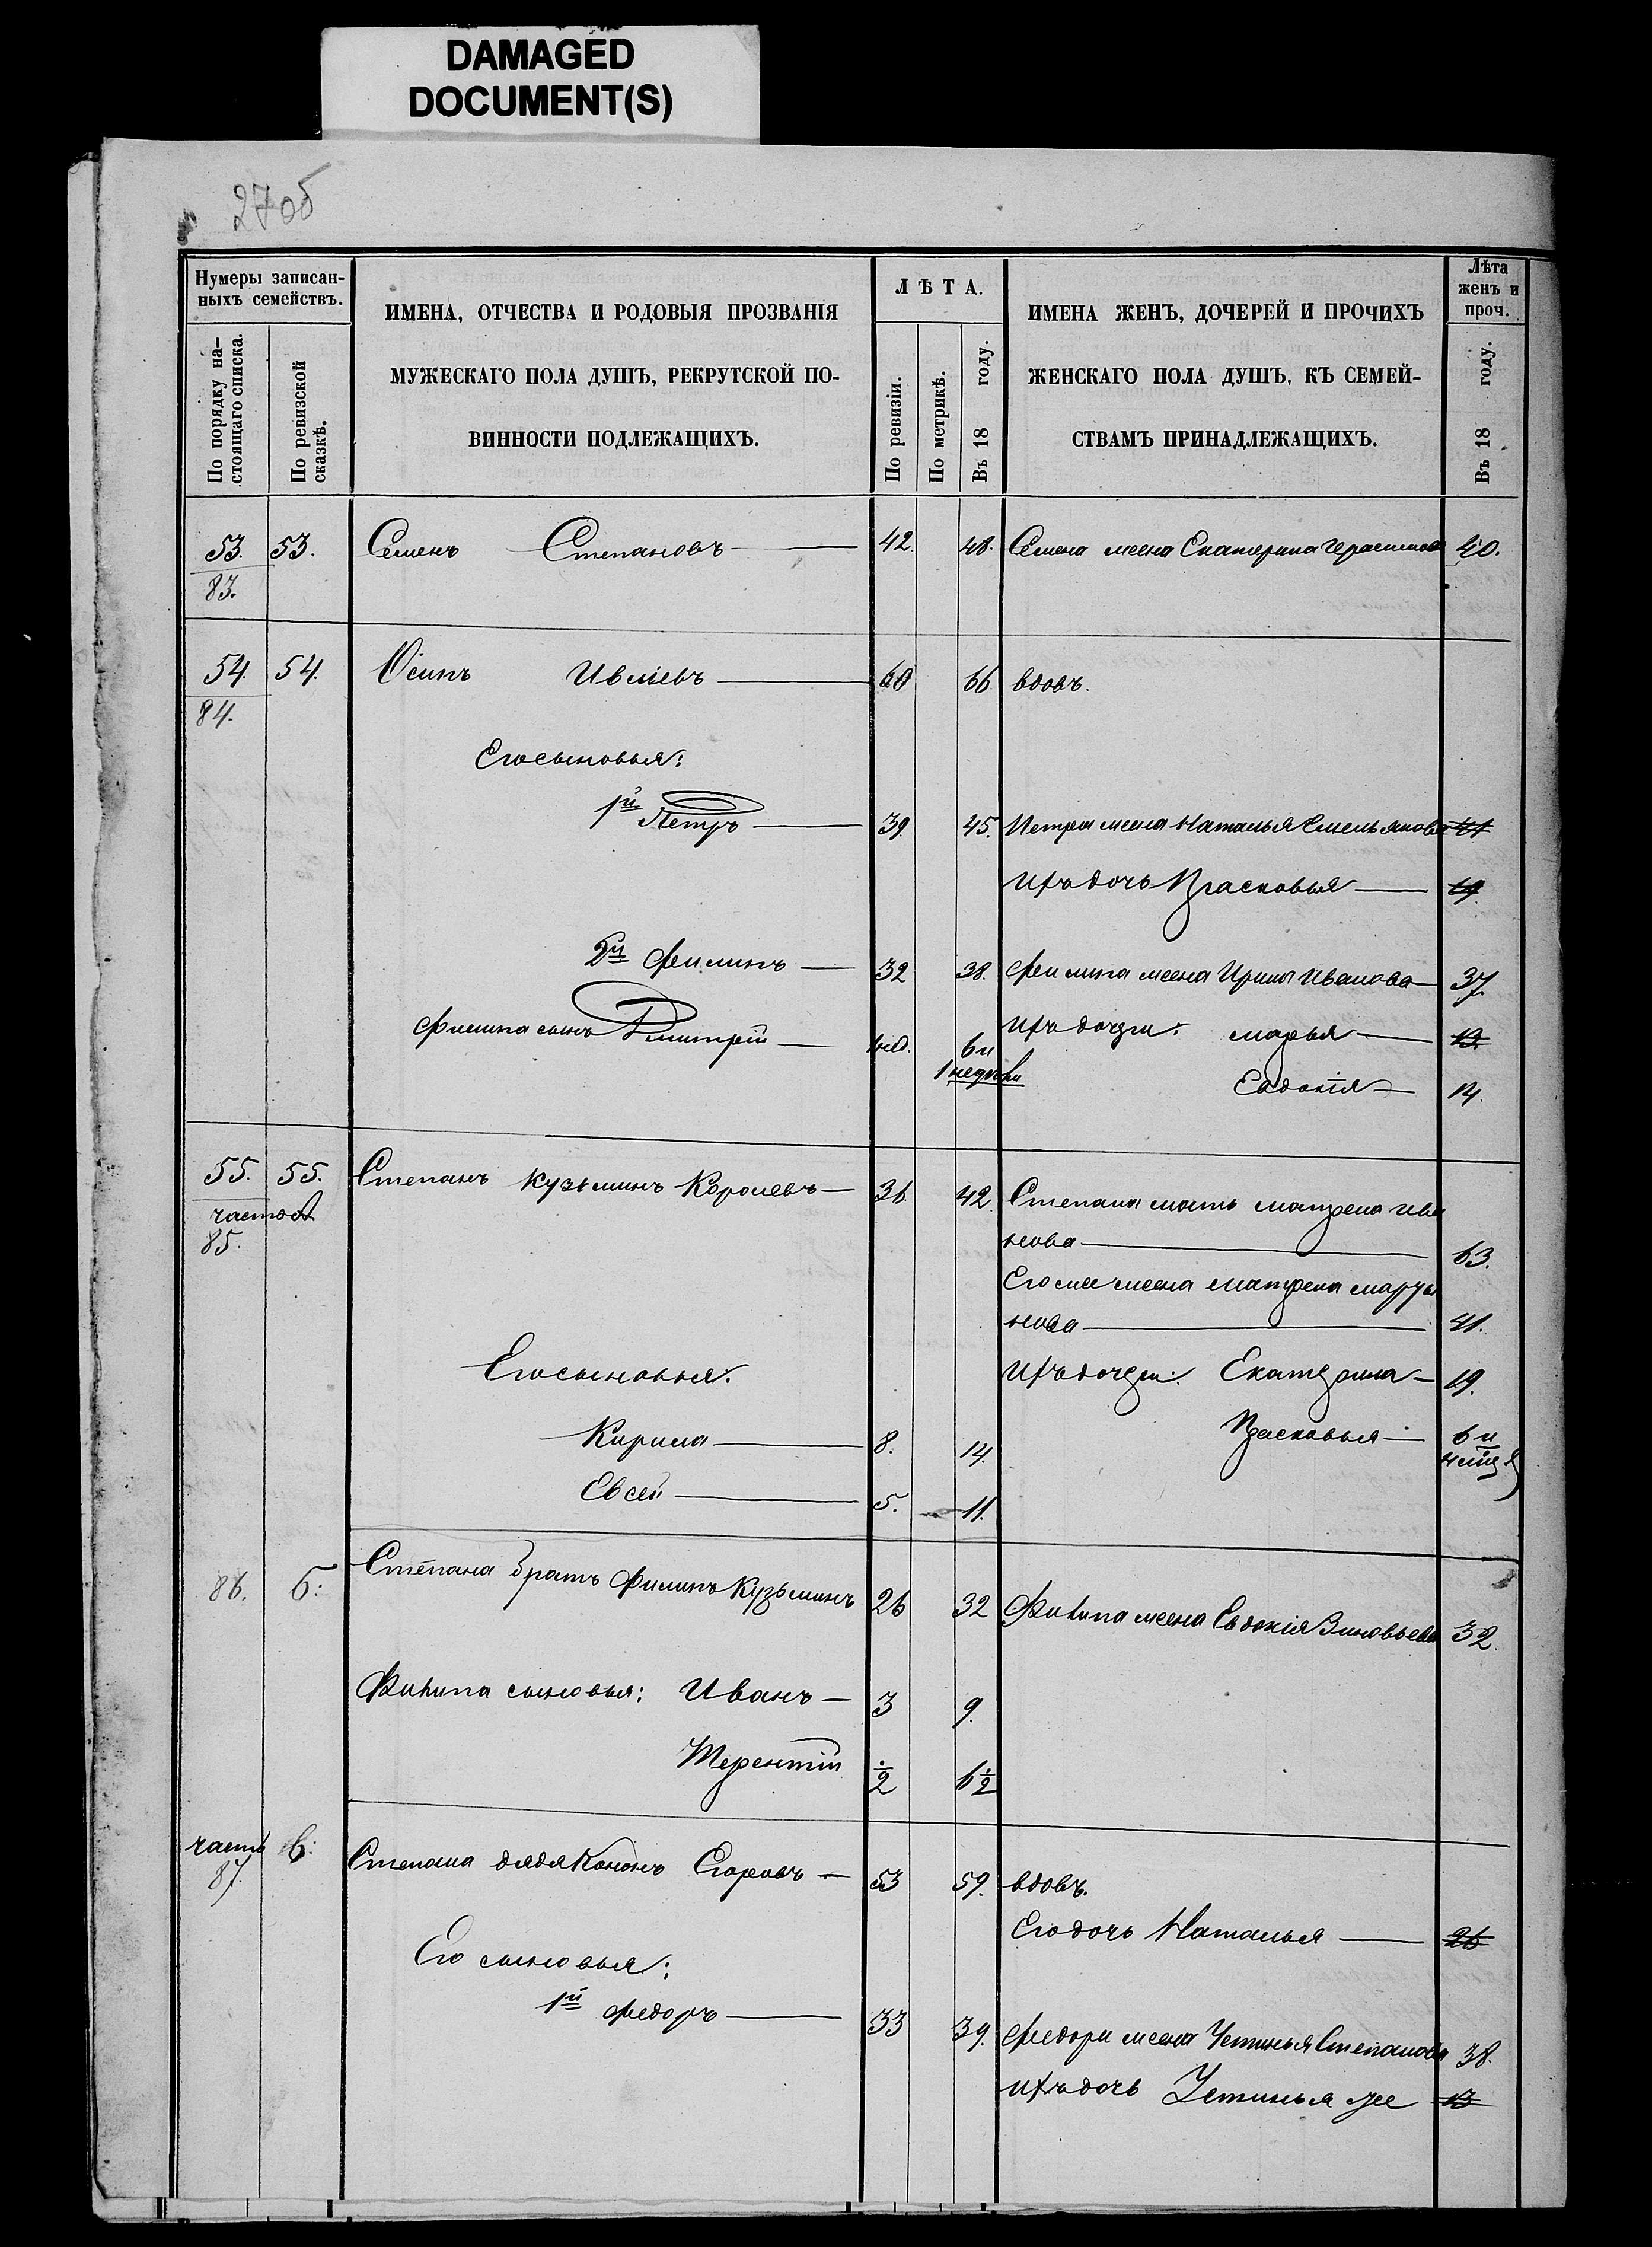 DAMAGED
DOCUMENT(S)
27об
Нумеры записан-
ныхъ семействъ.
По порядку на-
стоящаго списка.
По ревизской
сказкѣ.
ИМЕНА, ОТЧЕСТВА И РОДОВЫЯ ПРОЗВАНІЯ
МУЖЕСКАГО ПОЛА ДУШЪ, РЕКРУТСКОЙ ПО-
ВИННОСТИ ПОДЛЕЖАЩИХЪ.
ЛѢТА.
По ревизіи.
По метрикѣ.
Въ 18 году.
ИМЕНА ЖЕНЪ, ДОЧЕРЕЙ И ПРОЧИХЪ
ЖЕНСКАГО ПОЛА ДУШЪ, КЪ СЕМЕЙ-
СТВАМЪ ПРИНАДЛЕЖАЩИХЪ.
Лѣта
женъ и
проч.
Въ 18 году.
53. 53. Семенъ Степановъ 42. 48. Семена жена Екатерина Герасимова 40.
83.
54. 54. Осипъ Ивлiевъ 60 66 вдовъ.
84.
Его сыновья:
1й Петръ 39. 45. Петра жена Наталья Емельянова 44
Ихъ дочь Прасковья 19
2й Филипъ 32 38. Филипа жена Ирина Иванова 37
Филипа сынъ Дмитрiй нед. 6 и Ихъ дочери: Марья 13.
1 недѣли Евдокiя 14.
55. 55. Степанъ Кузьминъ Королевъ 36. 42. Степана мать Матрена Ива
часть А нова 63.
85.
Его же жена Матрена Марты
нова 41.
Его сыновья: Ихъ дочери: Екатерина 19.
Кирила 8. 14. Прасковья 6 и
Евсей 5. 11.
86. Б: Степана братъ Филипъ Кузьминъ 26 32 Филипа жена Евдокiя Зиновьева 32.
Филипа сыновья: Иванъ 3 9.
Терентiй ½ 6½
часть В: Степана дядя Кононъ Егоровъ 53 59. вдовъ.
87.
Его дочь Наталья 26
Его сыновья:
1й Федоръ 33 39. Федора жена Устинья Степанова 38.
Ихъ дочь Устинья же 13